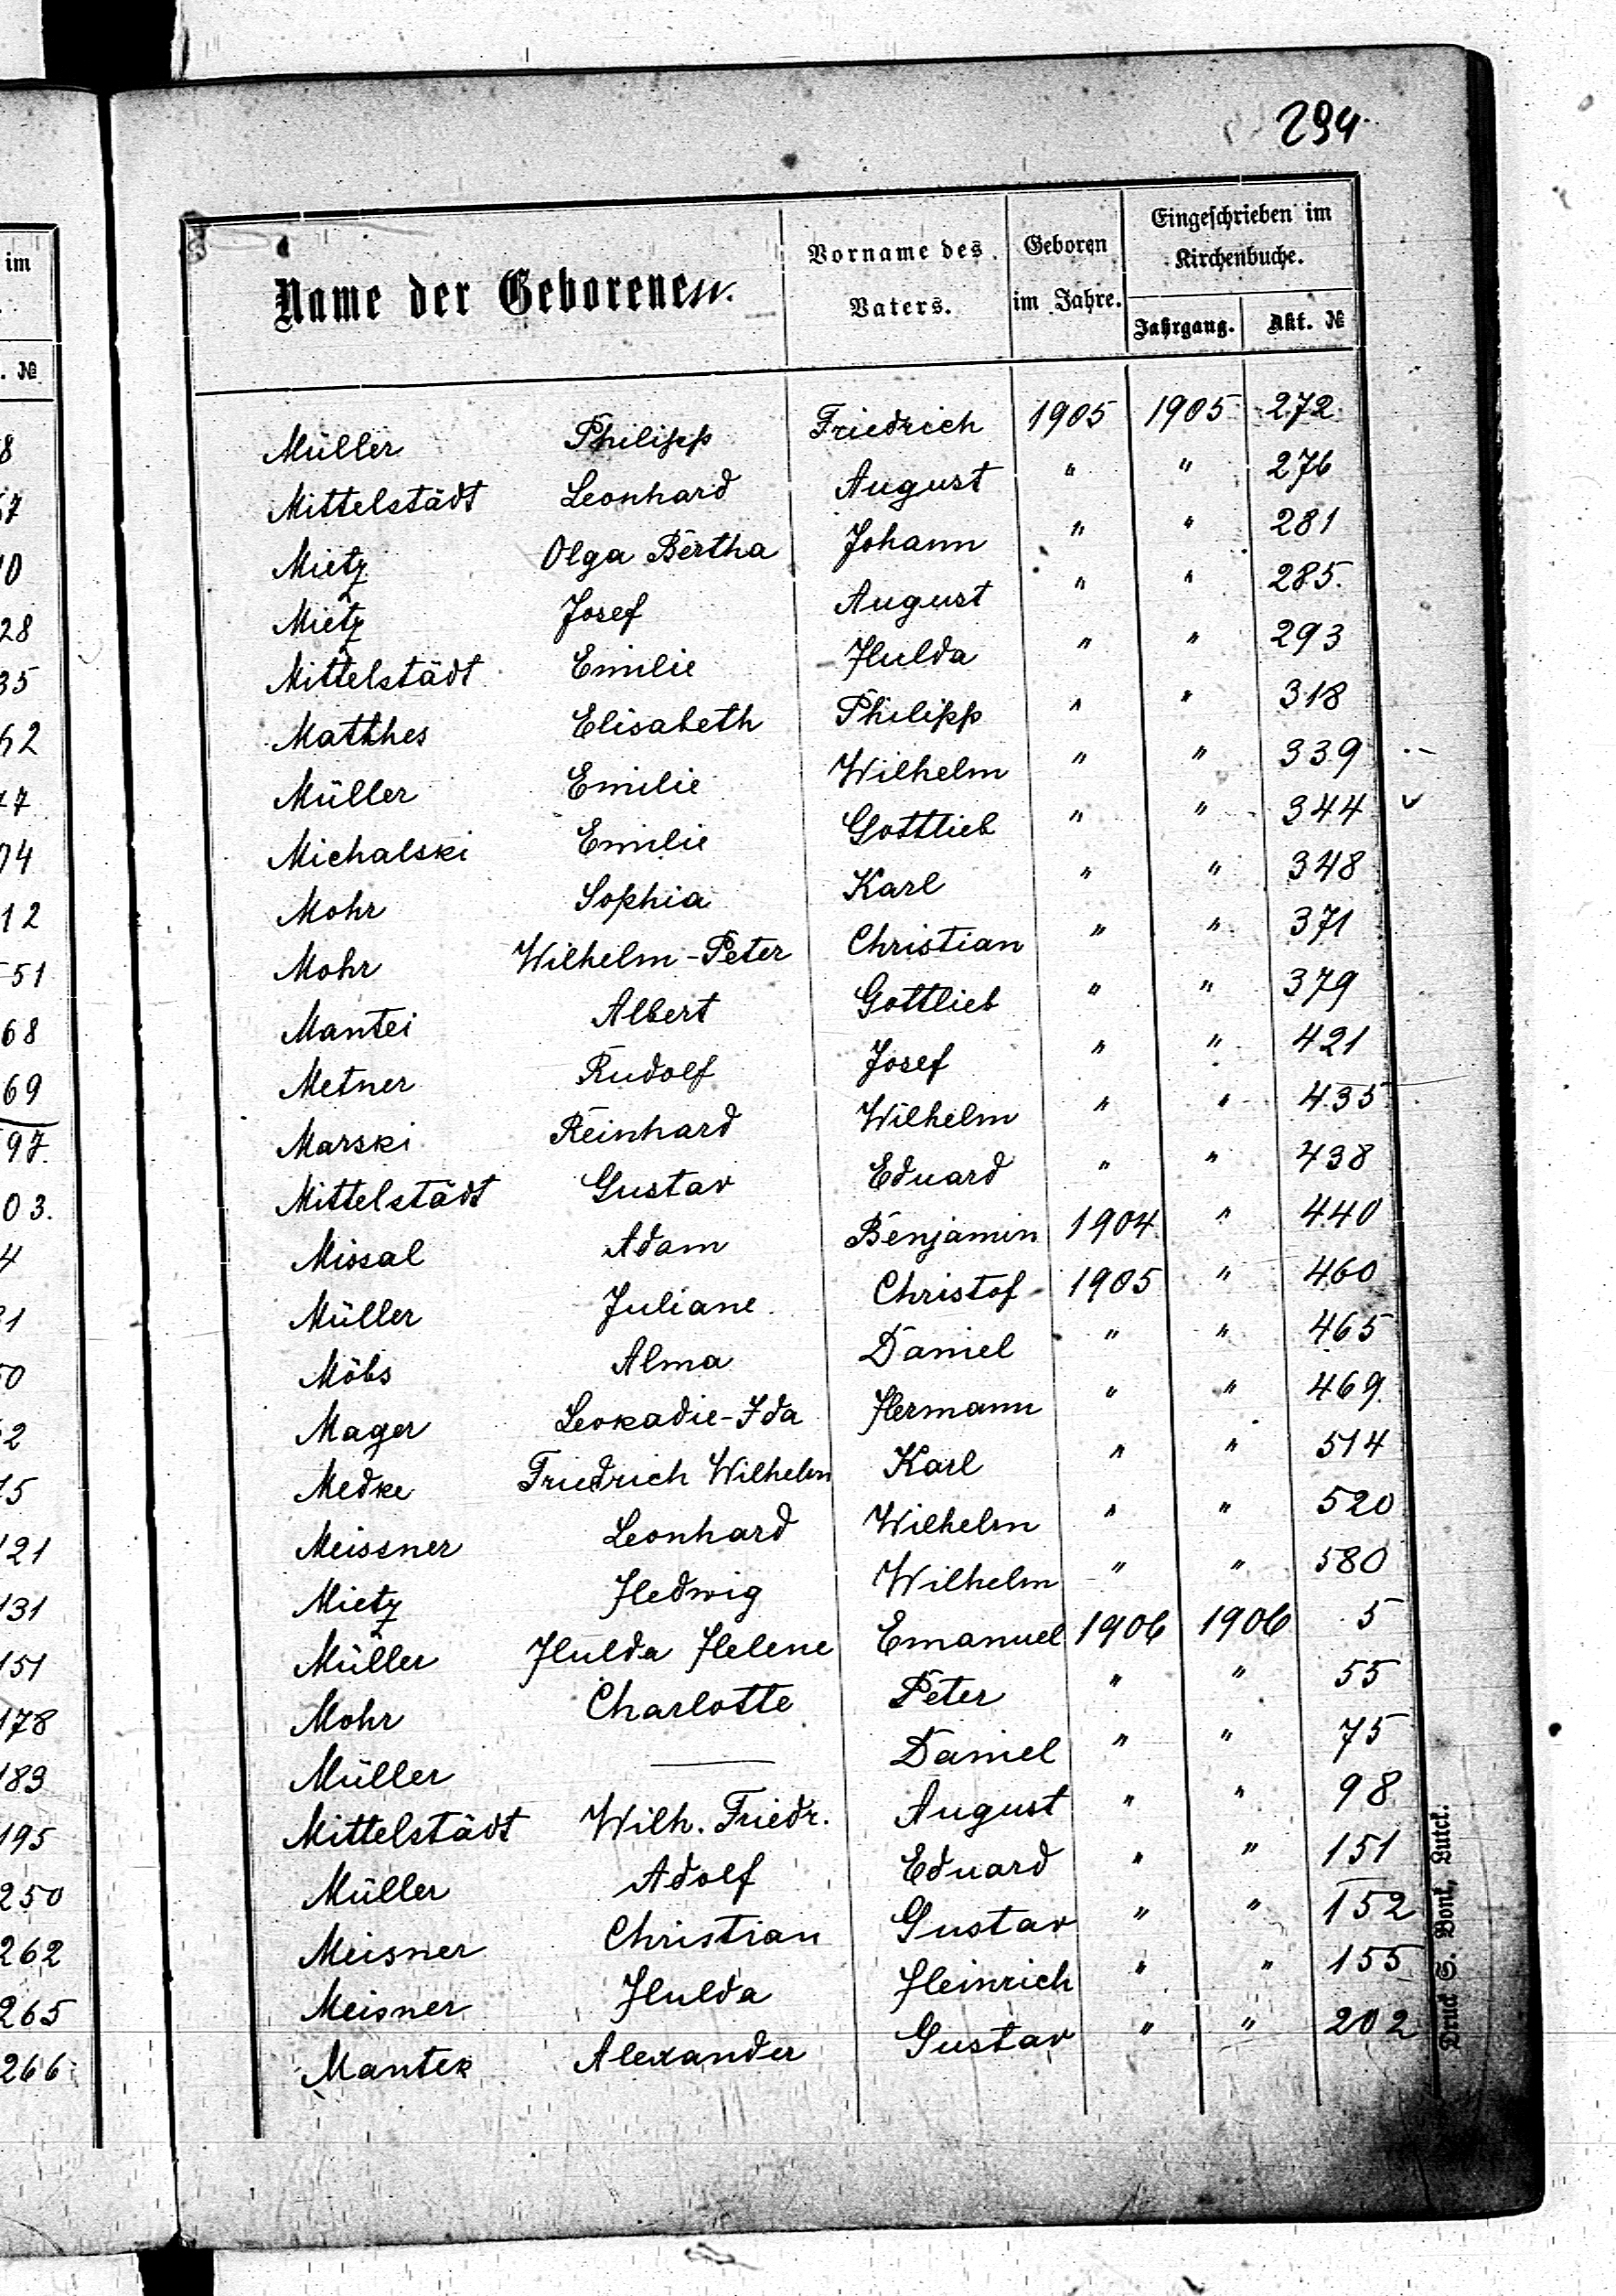 294
Name der Geborenen.
Vorname des Vaters.
Geboren im Jahre.
Eingeschrieben im Kirchenbuche.
Jahrgang.
Akt. №
Müller Philipp Friedrich 1905 1905 272
Mittelstädt Leonhard August " " 276
Mietz Olga Bertha Johann " " 281
Mietz Josef August " " 285.
Mittelstädt Emilie Hulda " " 293
Matthes Elisabeth Philipp " " 318
Müller Emilie Wilhelm " " 339
Michalski Emilie Gottlieb " " 344
Mohr Sophia Karl " " 348
Mohr Wilhelm-Peter Christian " " 371
Mantei Albert Gottlieb " " 379
Metner Rudolf Josef " " 421
Marski Reinhard Wilhelm " " 435
Mittelstädt Gustav Eduard " " 438
Missal Adam Benjamin 1904 " 440
Müller Juliane Christof 1905 " 460
Möbs Alma Daniel " " 465
Mager Leokadie-Ida Hermann " " 469
Medke Friedrich Wilhelm Karl " " 514
Meissner Leonhard Wilhelm " " 520
Mietz Hedwig Wilhelm " " 580
Müller Hulda Helene Emanuel 1906 1906 5
Mohr Charlotte Peter " " 55
Müller — Daniel " " 75
Mittelstädt Wilh. Friedr. August " " 98
Müller Adolf Eduard " " 151
Meisner Christian Gustav " " 152
Meisner Hulda Heinrich " " 155
Mantek Alexander Gustav " " 202
im
. №
8
10
28
35
62
12
51
68
69
97.
03.
4
121
131
151
178
183
195
250
262
265
266